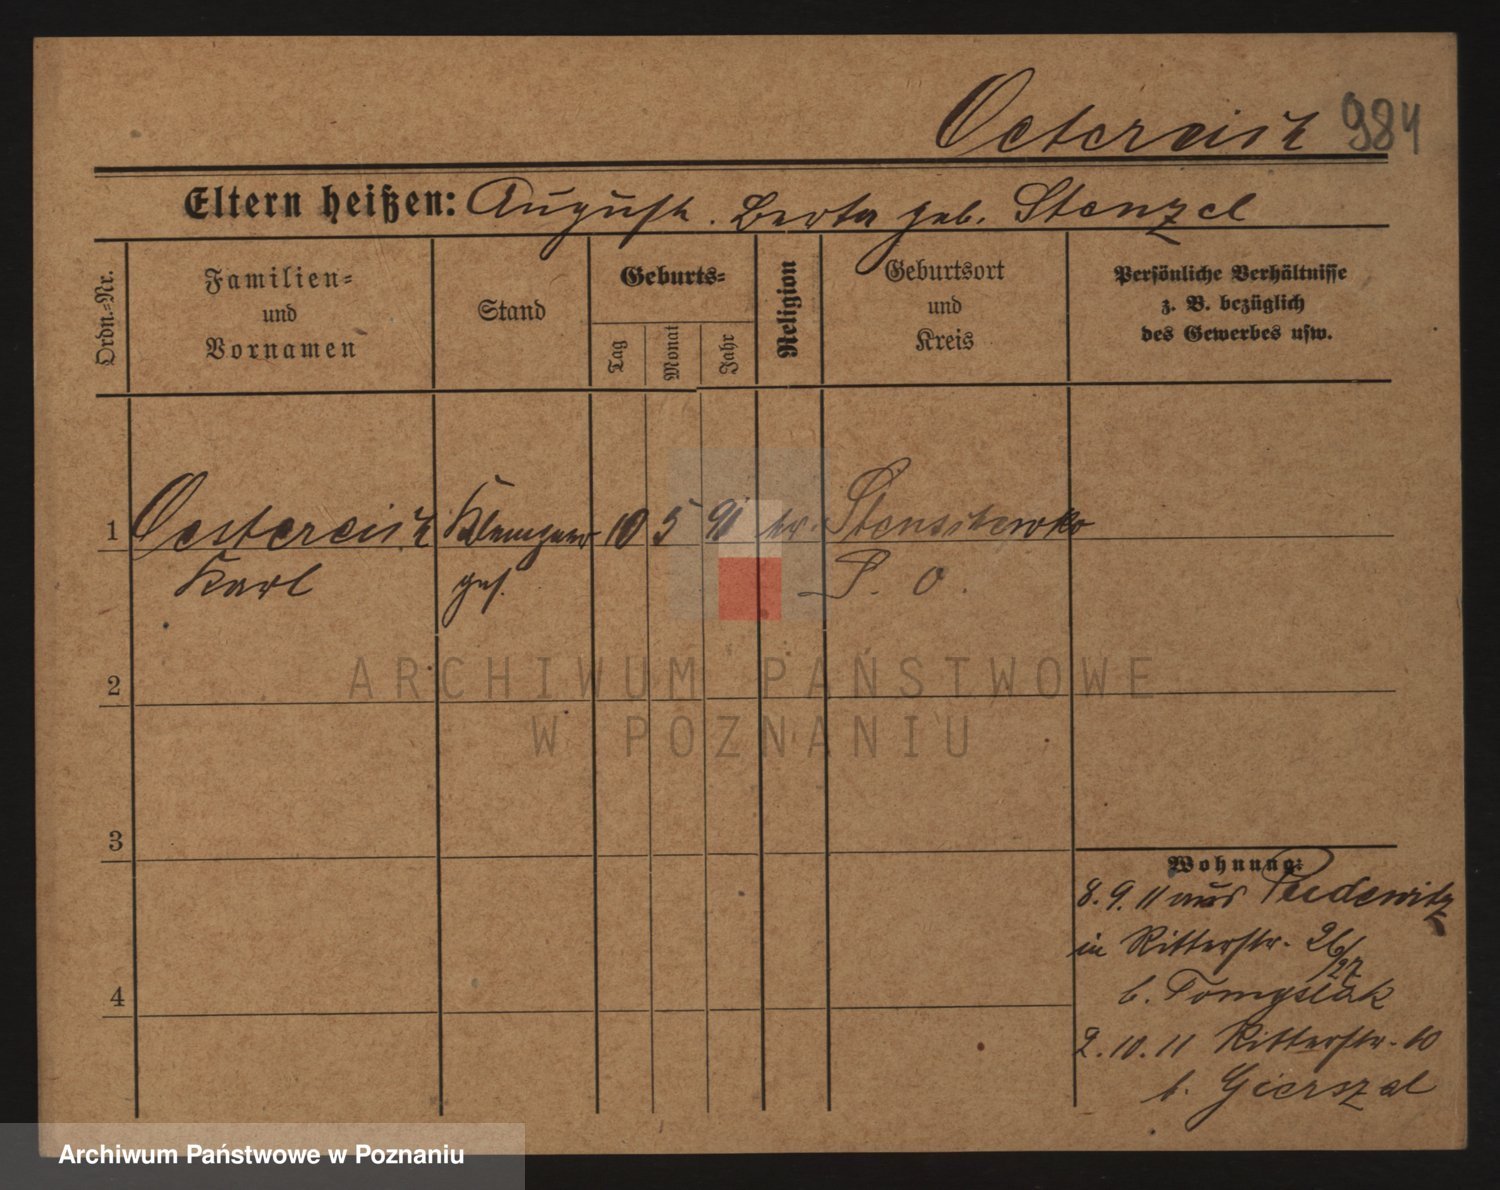 Oestereich 984
Eltern heißen: August. Berta geb. Stenzel
Ordn.-Nr.
Familien-
und
Vornamen
Stand
Geburts-
Tag
Monat
Jahr
Religion
Geburtsort
und
Kreis
Persönliche Verhältnisse
z. B. bezüglich
des Gewerbes usw.
1 Oestereich Klempner 10 5 91
Karl
P. O.
2
3
4
Wohnung:
8. 9. 11 aus Pudewitz
in Ritterstr. 26/27
b.
2. 10. 11 Ritterstr. 10
b. Gierszal
ARCHIWUM PAŃSTWOWE
W POZNANIU
Archiwum Państwowe w Poznaniu